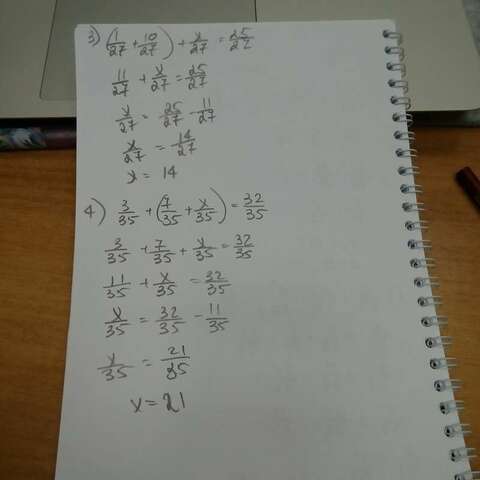 3) (1/27 + 10/27) + x/27 = 25/27
11/27 + x/27 = 25/27
x/27 = 25/27 - 11/27
x/27 = 14/27
x = 14
4) 3/35 + (7/35 + x/35) = 32/35
3/35 + 7/35 + x/35 = 32/35
11/35 + x/35 = 32/35
x/35 = 32/35 - 11/35
x/35 = 21/35
x = 21